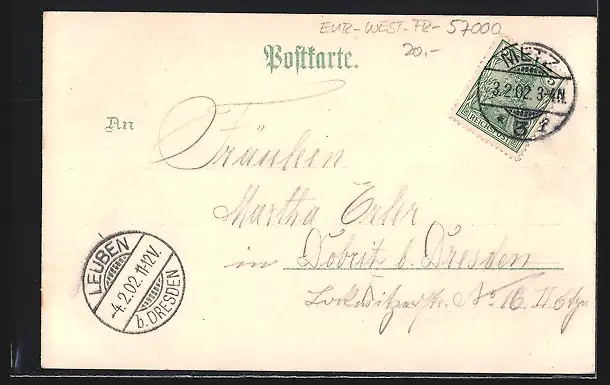 EUR-WEST-FR- 57000
20,-
Postkarte.
METZ
3.2.02 3-4N.
* 3
REICHSPOST
An
Fräulein
Martha Erler
in Dobritz b. Dresden
Lockwitzerstr. No 16 II Etg.
LEUBEN
-4.2.02.11-12V.
b. DRESDEN